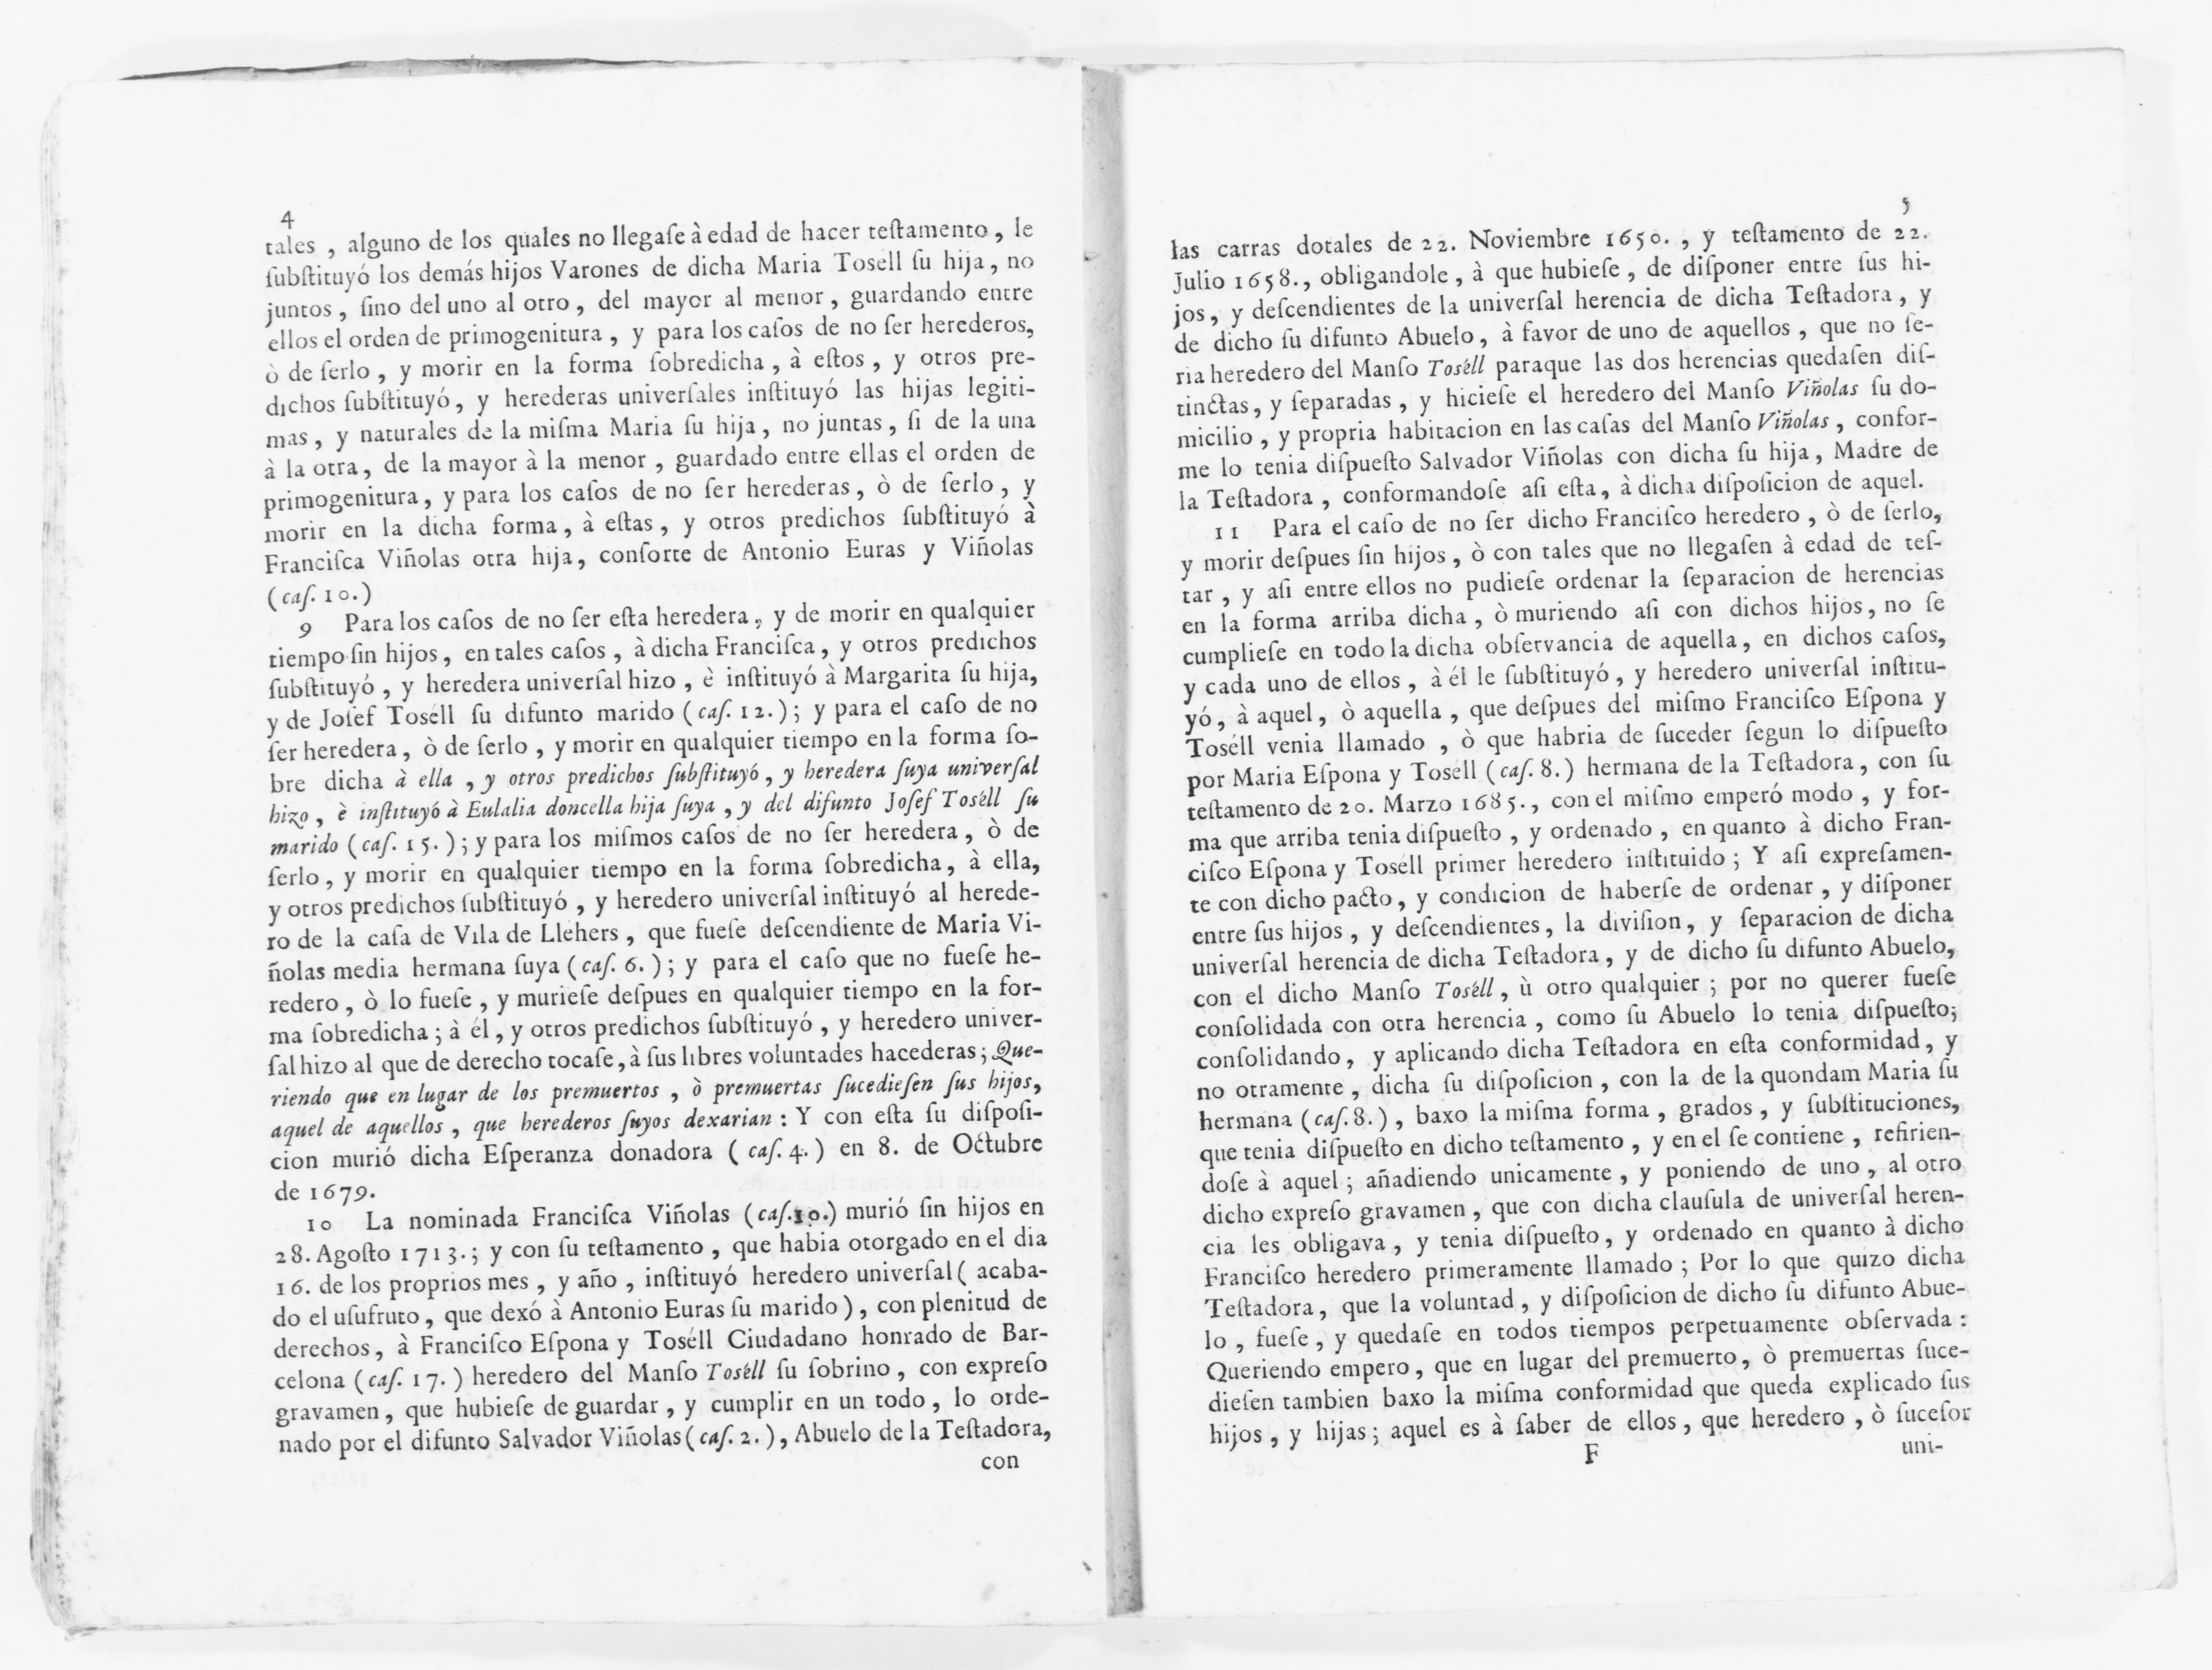 4
tales , alguno de los quales no llegaſe à edad de hacer teſtamento , le
ſubſtituyó los demás hijos Varones de dicha Maria Tosell ſu hija , no
juntos , ſino del uno al otro , del mayor al menor , guardando entre
ellos el orden de primogenitura , y para los caſos de no ſer herederos,
ò de ſerlo , y morir en la forma ſobredicha , à eſtos , y otros pre-
dichos ſubſtituyó , y herederas univerſales inſtituyó las hijas legiti-
mas , y naturales de la miſma Maria ſu hija , no juntas , ſi de la una
à la otra , de la mayor à la menor , guardado entre ellas el orden de
primogenitura , y para los caſos de no ſer herederas , ò de ſerlo , y
morir en la dicha forma , à eſtas , y otros predichos ſubſtituyó à
Franciſca Viñolas otra hija , conſorte de Antonio Euras y Viñolas
(caſ. 10.)
9 Para los caſos de no ſer eſta heredera , y de morir en qualquier
tiempo ſin hijos , en tales caſos , à dicha Franciſca , y otros predichos
ſubſtituyó , y heredera univerſal hizo , è inſtituyó à Margarita ſu hija,
y de Joſef Toséll ſu difunto marido (caſ. 12.) ; y para el caſo de no
ſer heredera , ò de ſerlo , y morir en qualquier tiempo en la forma ſo-
bre dicha à ella , y otros predichos ſubſtituyó , y heredera ſuya univerſal
hizo , è inſtituyó à Eulalia doncella hija ſuya , y del difunto Joſef Toséll ſu
marido (caſ. 15.) ; y para los miſmos caſos de no ſer heredera , ò de
ſerlo , y morir en qualquier tiempo en la forma ſobredicha , à ella,
y otros predichos ſubſtituyó , y heredero univerſal inſtituyó al herede-
ro de la caſa de Vila de Llehers , que fueſe deſcendiente de Maria Vi-
ñolas media hermana ſuya (caſ. 6.) ; y para el caſo que no fueſe he-
redero , ò lo fueſe , y murieſe deſpues en qualquier tiempo en la for-
ma ſobredicha ; à él , y otros predichos ſubſtituyó , y heredero univer-
ſal hizo al que de derecho tocaſe , à ſus libres voluntades hacederas ; Que-
riendo que en lugar de los premuertos , ò premuertas ſucedieſen ſus hijos,
aquel de aquellos , que herederos ſuyos dexarian : Y con eſta ſu diſpoſi-
cion murió dicha Eſperanza donadora (caſ. 4.) en 8. de Octubre
de 1679.
10 La nominada Franciſca Viñolas (caſ.10.) murió ſin hijos en
28. Agoſto 1713. ; y con ſu teſtamento , que habia otorgado en el dia
16. de los proprios mes , y año , inſtituyó heredero univerſal ( acaba-
do el uſufruto , que dexó à Antonio Euras ſu marido ) , con plenitud de
derechos , à Franciſco Eſpona y Toséll Ciudadano honrado de Bar-
celona (caſ. 17.) heredero del Manſo Toséll ſu ſobrino , con expreſo
gravamen , que hubieſe de guardar , y cumplir en un todo , lo orde-
nado por el difunto Salvador Viñolas (caſ. 2.) , Abuelo de la Teſtadora,
con
5
las carras dotales de 22. Noviembre 1650. , y teſtamento de 22.
Julio 1658. , obligandole , à que hubieſe , de diſponer entre ſus hi-
jos , y deſcendientes de la univerſal herencia de dicha Teſtadora , y
de dicho ſu difunto Abuelo , à favor de uno de aquellos , que no ſe-
ria heredero del Manſo Toséll paraque las dos herencias quedaſen diſ-
tinctas , y ſeparadas , y hicieſe el heredero del Manſo Viñolas ſu do-
micilio , y propria habitacion en las caſas del Manſo Viñolas , confor-
me lo tenia diſpueſto Salvador Viñolas con dicha ſu hija , Madre de
la Teſtadora , conformandoſe aſi eſta , à dicha diſpoſicion de aquel.
11 Para el caſo de no ſer dicho Franciſco heredero , ò de ſerlo,
y morir deſpues ſin hijos , ò con tales que no llegaſen à edad de teſ-
tar , y aſi entre ellos no pudieſe ordenar la ſeparacion de herencias
en la forma arriba dicha , ò muriendo aſi con dichos hijos , no ſe
cumplieſe en todo la dicha obſervancia de aquella , en dichos caſos,
y cada uno de ellos , à él le ſubſtituyó , y heredero univerſal inſtitu-
yó , à aquel , ò aquella , que deſpues del miſmo Franciſco Eſpona y
Toséll venia llamado , ò que habria de ſuceder ſegun lo diſpueſto
por Maria Eſpona y Toséll (caſ. 8.) hermana de la Teſtadora , con ſu
teſtamento de 20. Marzo 1685. , con el miſmo emperó modo , y for-
ma que arriba tenia diſpueſto , y ordenado , en quanto à dicho Fran-
ciſco Eſpona y Toséll primer heredero inſtituido ; Y aſi expreſamen-
te con dicho pacto , y condicion de haberſe de ordenar , y diſponer
entre ſus hijos , y deſcendientes , la diviſion , y ſeparacion de dicha
univerſal herencia de dicha Teſtadora , y de dicho ſu difunto Abuelo,
con el dicho Manſo Toséll , ù otro qualquier ; por no querer fueſe
conſolidada con otra herencia , como ſu Abuelo lo tenia diſpueſto;
conſolidando , y aplicando dicha Teſtadora en eſta conformidad , y
no otramente , dicha ſu diſpoſicion , con la de la quondam Maria ſu
hermana (caſ. 8.) , baxo la miſma forma , grados , y ſubſtituciones,
que tenia diſpueſto en dicho teſtamento , y en el ſe contiene , refirien-
doſe à aquel ; añadiendo unicamente , y poniendo de uno , al otro
dicho expreſo gravamen , que con dicha clauſula de univerſal heren-
cia les obligava , y tenia diſpueſto , y ordenado en quanto à dicho
Franciſco heredero primeramente llamado ; Por lo que quizo dicha
Teſtadora , que la voluntad , y diſpoſicion de dicho ſu difunto Abue-
lo , fueſe , y quedaſe en todos tiempos perpetuamente obſervada :
Queriendo empero , que en lugar del premuerto , ò premuertas ſuce-
dieſen tambien baxo la miſma conformidad que queda explicado ſus
hijos , y hijas ; aquel es à ſaber de ellos , que heredero , ò ſuceſor
F uni-